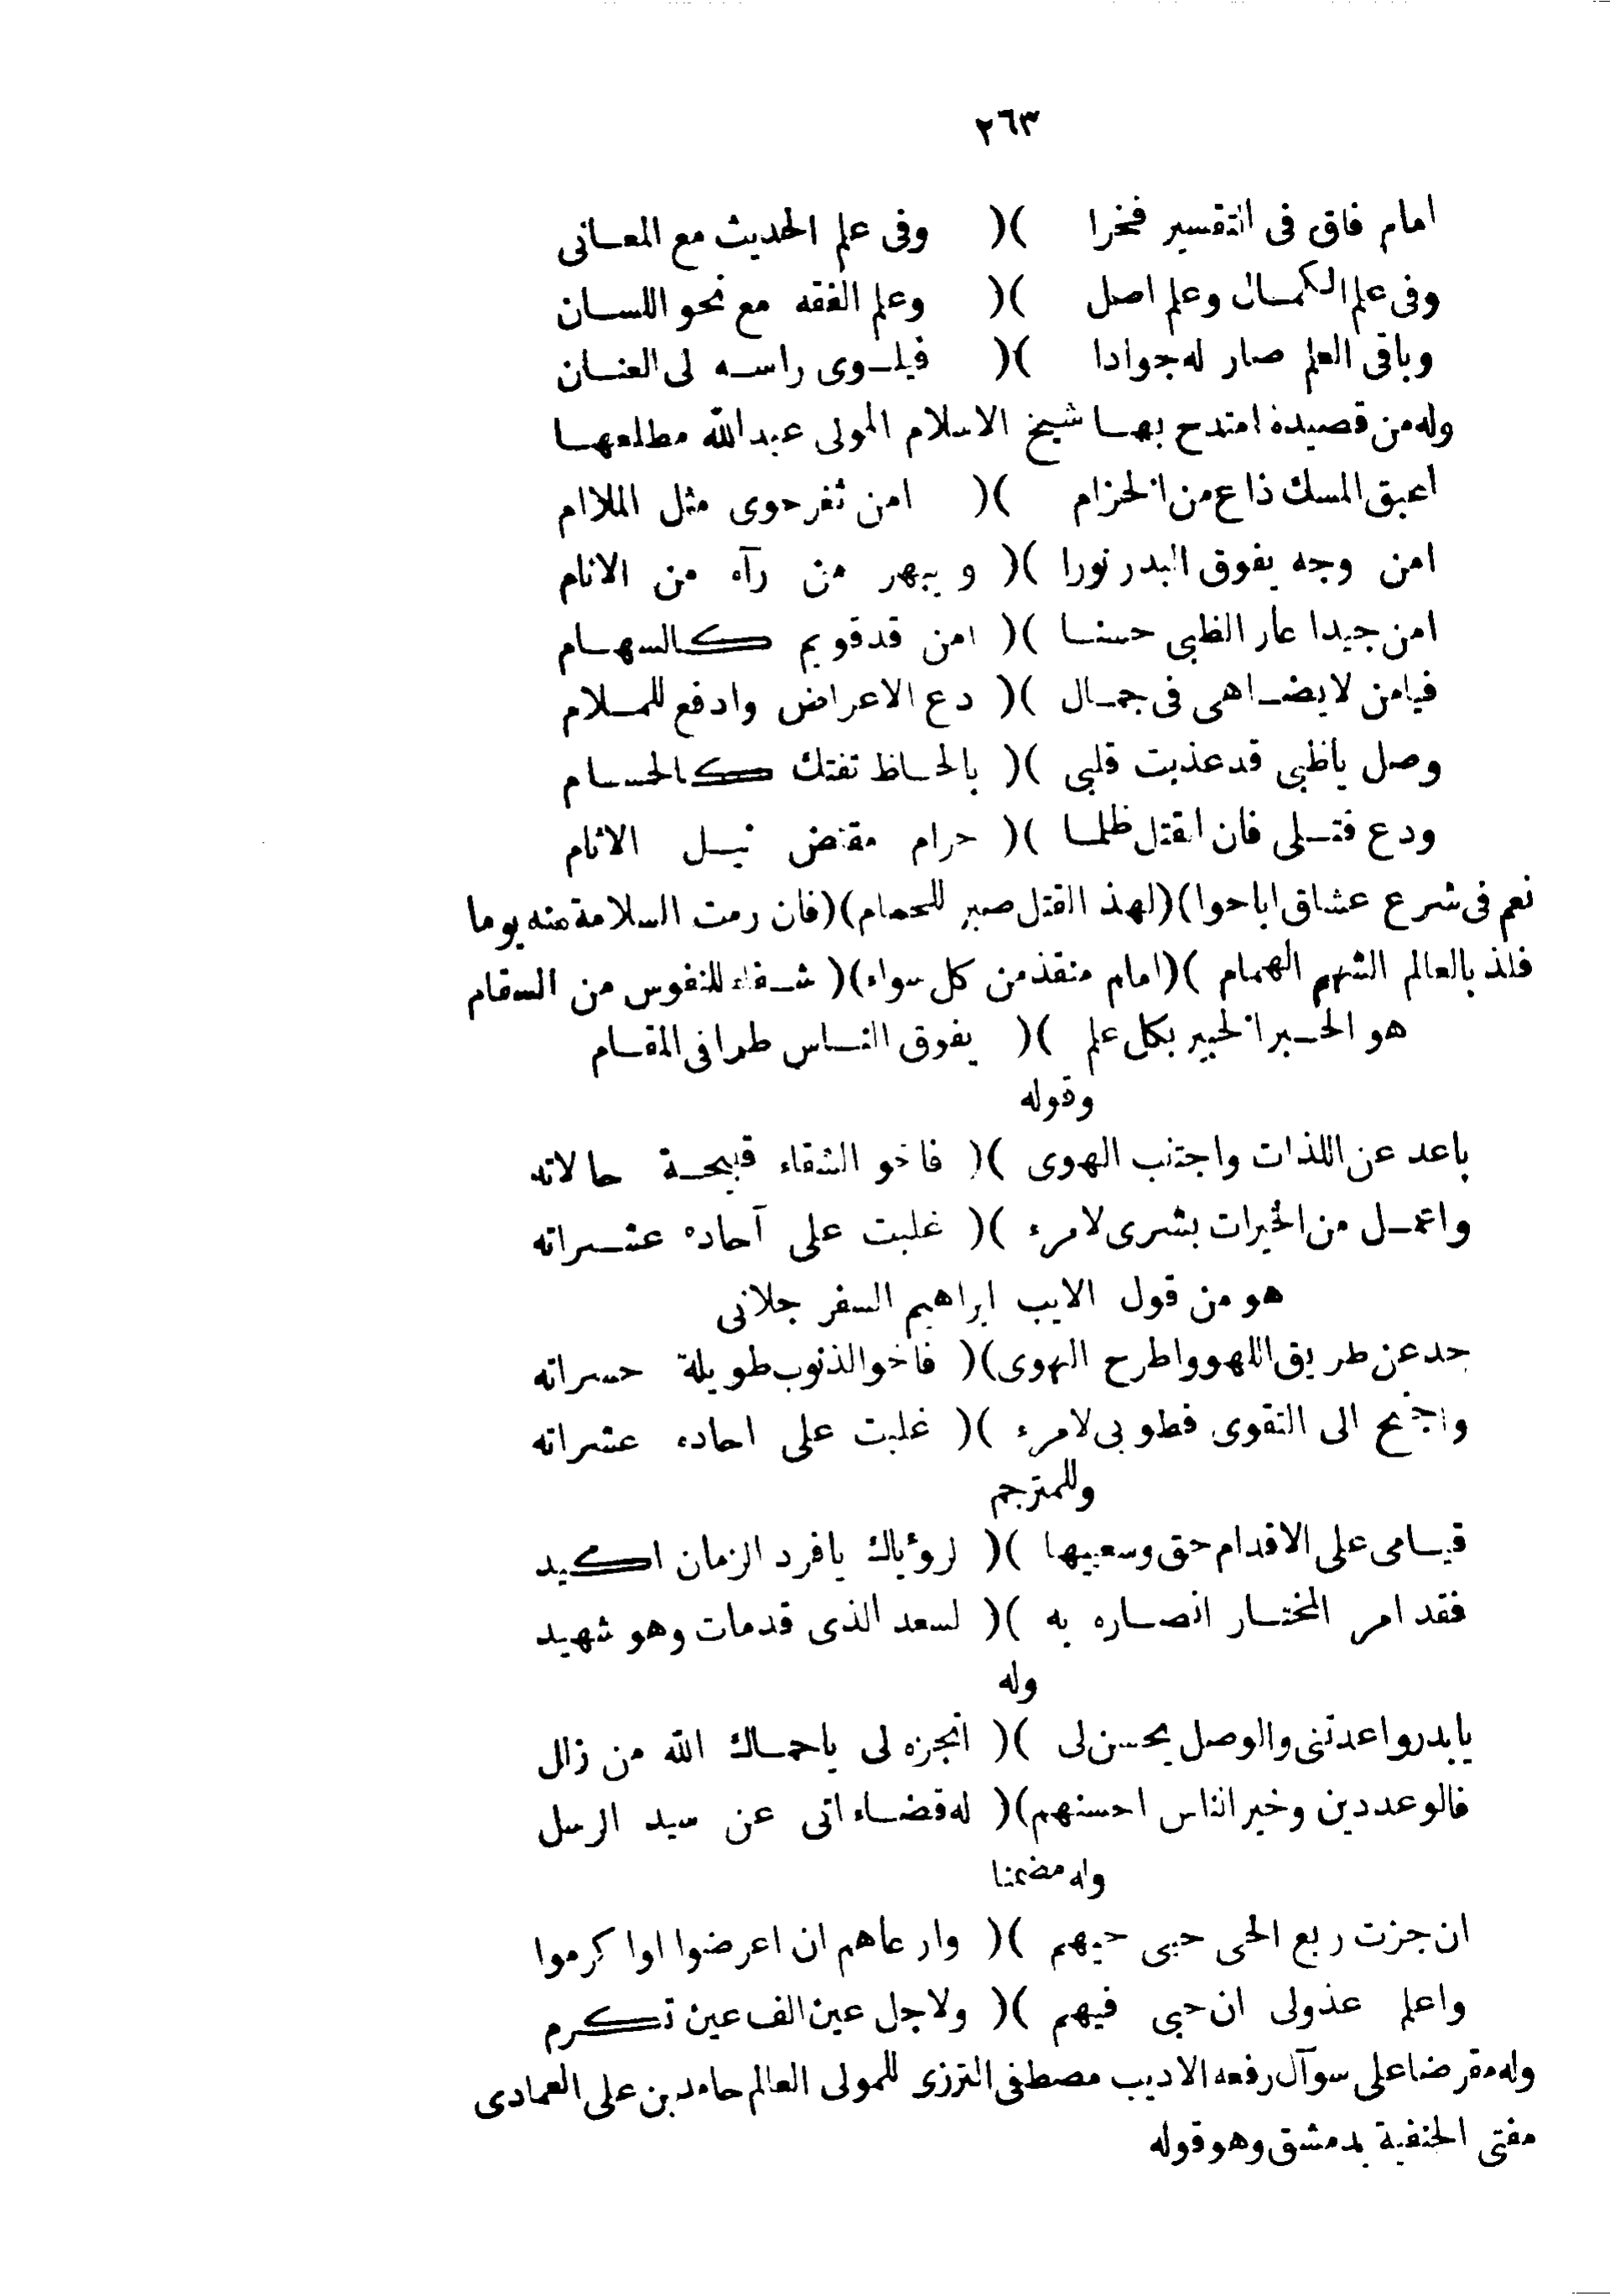 ٢٦٣
امام فاق فى التفسير فخرا )( وفى علم الحديث مع المعانى
وفى علم الكمال وعلم اصل )( وعلم الفقه مع نحو اللسان
وباقى العلم صار له جوادا )( فيلوى راسه لى العنان
وله من قصيدة امتدح بها شيخ الاسلام المولى عبدالله مطلعها
اعبق المسك ذاع من الخزام )( امن ثغر حوى مثل الملاام
امن وجه يفوق البدر نورا )( و يبهر من رآه من الانام
امن جيدا عار الظبى حسنا )( امن قد قويم كالسهام
فيامن لا يضاهى فى جمال )( دع الاعراض وادفع للملام
وصل ياظبى قد عذبت قلبى )( بالحاظ تفتك كالحسام
ودع قتلى فان القتل ظلما )( حرام مقتض نيل الاثام
نعم فى شرع عشاق اباحوا )( لهذ القتل صبر للحمام )( فان رمت السلامة منه يوما
فلذ بالعالم الشهم الهمام )( امام منقذ من كل سواء )( شفاء للنفوس من السقام
هو الحبر الخبير بكل علم )( يفوق الناس طرا فى المقام
وقوله
باعد عن اللذات واجتنب الهوى )( فاخو الشقاء قبيحة حالاته
واعمل من الخيرات بشرى لامرء )( غلبت على آحاده عشراته
هو من قول الايب ابراهيم السفر جلانى
حد عن طريق اللهو واطرح الهوى )( فاخو الذنوب طويلة حسراته
واجنح الى التقوى فطوبى لامرء )( غلبت على احاده عشراته
وللمترجم
قيامى على الاقدام حق وسعيها )( لرؤياك يافرد الزمان اكيد
فقد امر المختار انصاره به )( لسعد الذى قدمات وهو شهيد
وله
يابدر واعدتنى والوصل يحسن لى )( انجزه لى ياحماك الله من زال
فالوعد دين وخير الناس احسنهم )( له قضاء اتى عن سيد الرسل
وله مضمنا
ان جزت ربع الحى حيى حيهم )( وارعاهم ان اعرضوا اواكرموا
واعلم عذولى ان حبى فيهم )( ولاجل عين الف عين تكرم
وله مقرضا على سوآل رفعه الاديب مصطفى الترزى للمولى العالم حامد بن على العمادى
مفتى الحنفية بدمشق وهو قوله